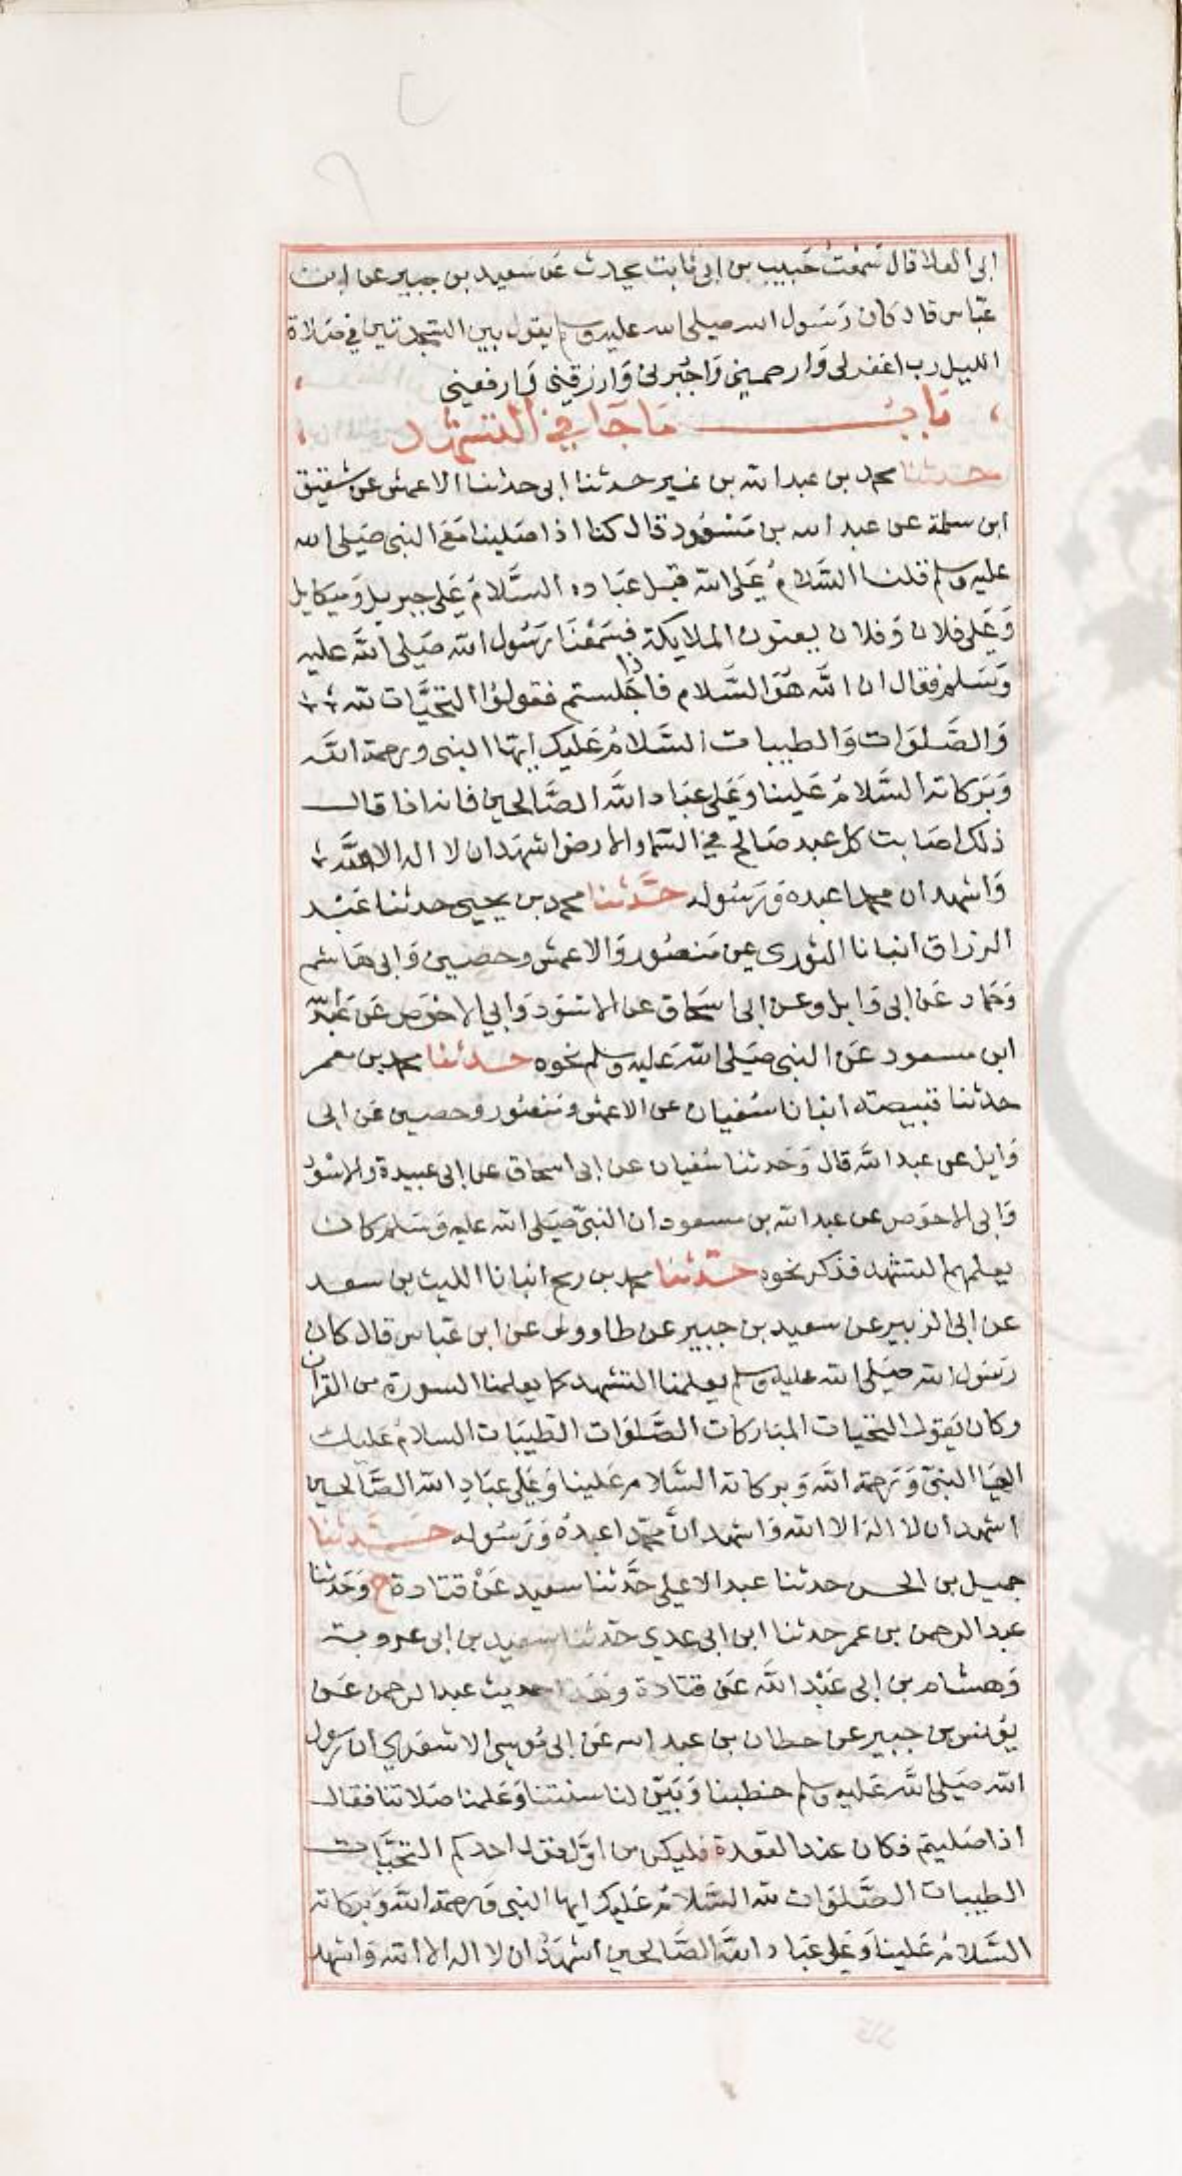 ابى العلا قال سَمعْت حَبيب بن ابى ثابت يحدث عَن سَعيد بن جبير عن ابن
عَبّاس قال كان رَسَول الله صَلى الله عليه وسلم يقول بين السَّجدتين في صَلاة
الليل رب اغفر لى وَارحمنِي وَاجبُرلى وَارزقِني وَارفعني
بَابُ مَا جَا في التشهد
حدثنا محمد بن عبد الله بن نمير حدثنا ابى حدثنا الاعمش عن شقيق
ابن سلمة عن عبد الله بن مَسْعُود قال كنا اذا صَلينا مَعَ النبى صَلى الله
عليه وسلم قلنا السَّلامُ عَلى الله قبل عبَاده السَّلامُ عَلى جبريل وَميكايل
وَعَلى فلان وَفلان يعنون الملايكة فسَمعْنَا رسُول الله صَلى الله عليه
وَسَلم فقال ان الله هُوَ السَّلام فاذا جَلستم فقولوُا التحيَّات لله
وَالصَّلوَات وَالطيبات السَّلامُ عَليك ايها النبى ورحمة الله
وَبَركاته السَّلامُ عَلينا وَعَلى عبَاد الله الصَّالحين فانه اذا قال
ذلك اصَابت كل عبد صَالح في السَّما والارض اشهَد ان لا اله الا الله
وَاشهد ان محمدا عبده وَرَسُوله حَدَّثنا محمد بن يحيى حدثنا عَبْد
الرزاق انبانا الثورى عن مَنصُور وَالاعمش وحصين وَابى هَاشم
وَحَماد عَن ابى وَايل وعن ابى اسحَاق عن الاسَود وَابى الاحْوَص عَن عَبْد الله
ابن مسعود عَن النبى صَلى الله عَليه وسلم نحوه حدثنا محمد بن معمر
حدثنا قبيصة انبانا سُفيان عن الاعمش ومنصُور وحصين عَن ابى
وَايل عن عبد الله قال وَحَدثنا سُفيان عن ابى اسحاق عن ابى عبيدة والاسْوَد
وَابى الاحوَص عن عبد الله بن مسعود ان النبىّ صَلى الله عليه وَسَلم كان
يعلمهم التشهد فذكر نحوه حدّثنا محمد بن رمح انبانا الليث بن سعد
عن ابى الزبير عن سعيد بن جبير عن طاووس عن ابن عَباس قال كان
رَسَول الله صَلى الله عليه وسلم يعلمنا التشهد كما يعلمنا السورة من القران
وكان يَقول التحيات المبَاركات الصَّلوَات الطيبَات السلامُ عَليك
ايهَا النبىّ وَرَحمة الله وَبركاته السَّلامُ عَلينا وَعَلى عبَادِ الله الصَّالحين
اشهد ان لا اله الا الله وَاشهد انَّ محمّدا عبدهُ وَرَسُوله حَدَّثنا
جميل بن الحسن حدثنا عبد الاعلى حَدَّثنا سعيد عَنْ قتادة ح وَحَدثنا
عبد الرحمن بن عمر حدثنا ابن ابى عدي حدثنا سعيد بن ابى عروبة
وَهشام بن ابى عَبْد الله عَن قتادة وهَذا حديث عبد الرحمن عَن
يوُنس بن جبير عن حطان بن عبد الله عَن ابى مُوسى الاشعَري ان رسول
الله صَلى الله عَليه وسلم خطبنا وَبَيّن لنا سنتنا وَعَلمنا صَلاتنا فقال
اذا صَليتم فكان عند القعدة فليكن من اوَّل قول احدكم التحيَّات
الطيبات الصَّلوَات لله السَّلامُ عَليك ايها النبى وَرحمة الله وَبركاته
السَّلامُ عَلينا وَعَلى عبَاد الله الصَّالحين اشهَدُ ان لا اله الا الله وَاشهد